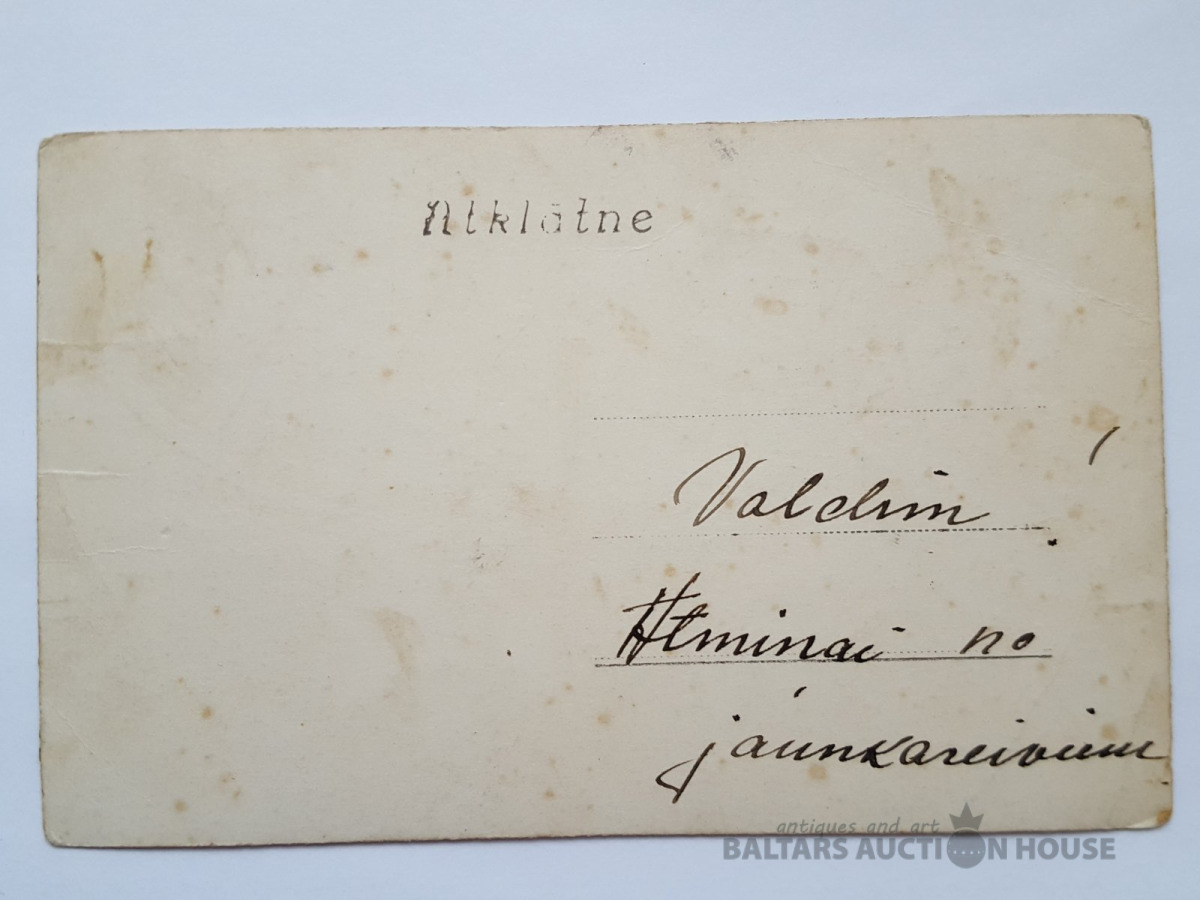 Atklātne
Valdim
Atminai no
jaunkareiviem
antiques and art
BALTARS AUCTION HOUSE